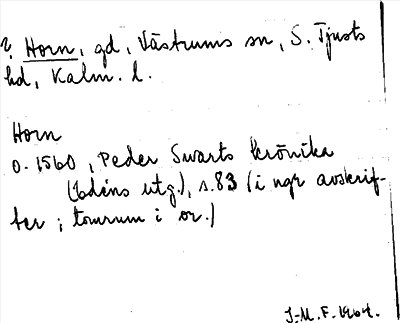 ? Horn, gd, Västrums sn, S. Tjusts
hd, Kalm. l.
Horn
o. 1560, Peder Swarts krönika
(Edéns utg.), s. 83 (i ngr avskrif-
ter; tomrum i or.)
J-M. F. 1964.